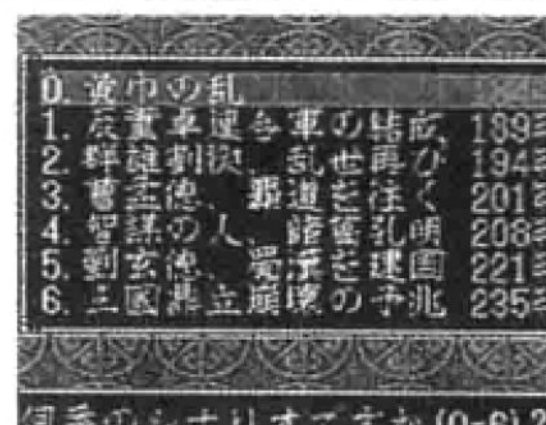 0. 黄巾の乱 184年
1. 反董卓連合軍の結成 189年
2. 群雄割拠、乱世再び 194年
3. 曹孟徳、覇道を往く 201年
4. 智謀の人、諸葛孔明 208年
5. 劉玄徳、蜀漢を建国 221年
6. 三國鼎立崩壊の予兆 235年
何番のシナリオですか(0-6)?